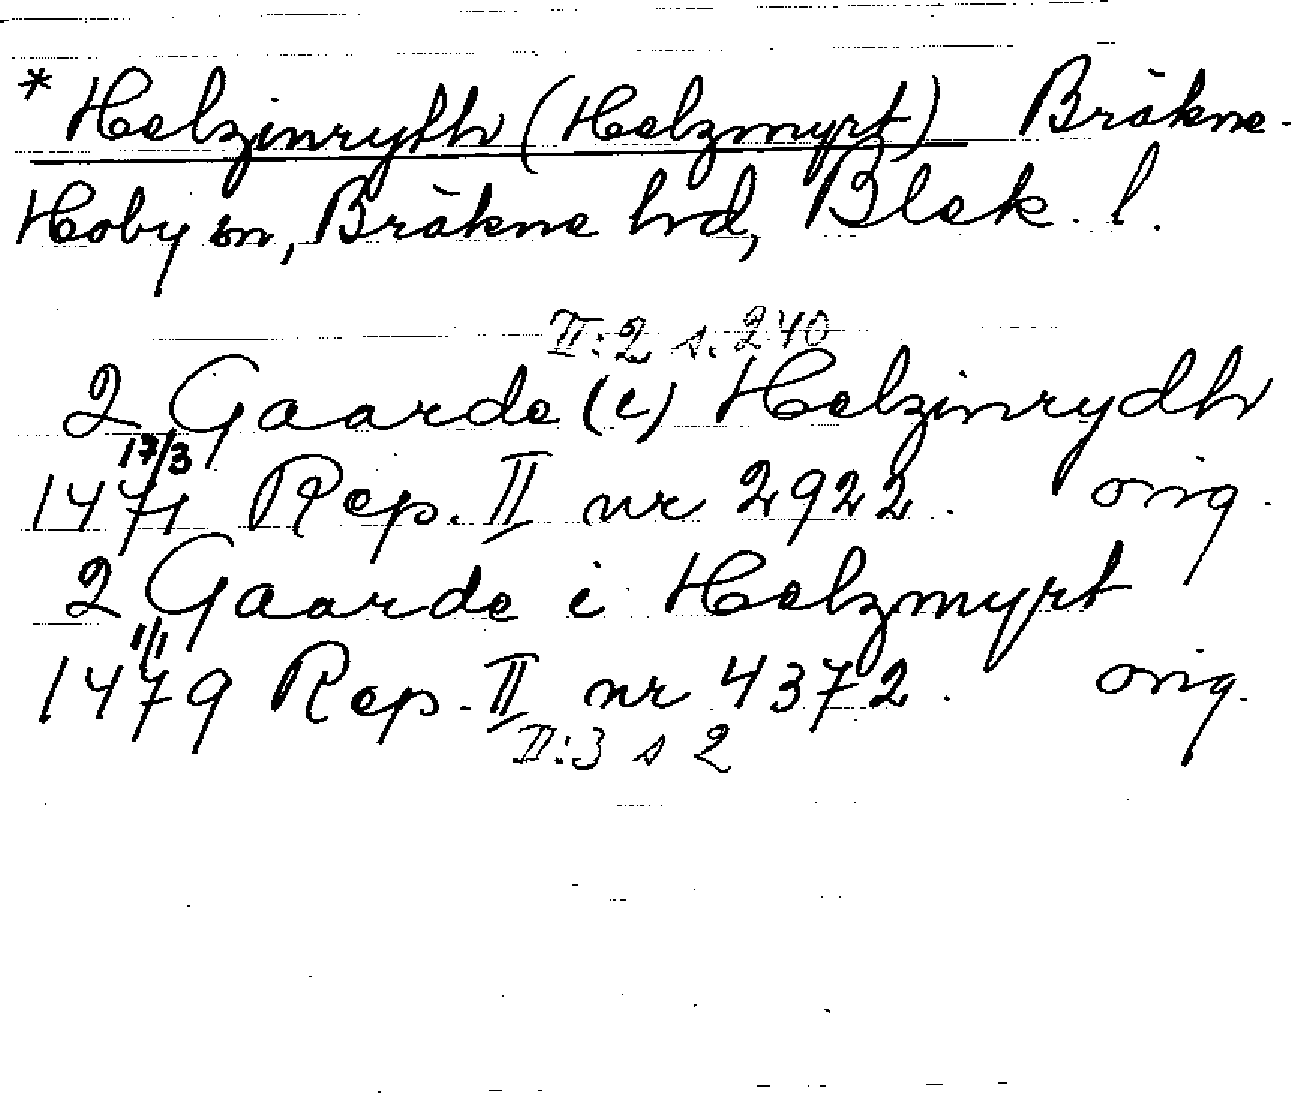 * Helzinryth (Helzmyrt) Bräkne-
Hoby sn, Bräkne hd, Blek. l.
II:2 s. 240
2 Gaarde (i) Helzinrydh
17/3
1471 Rep. II nr 2922. orig.
2 Gaarde i Helzmyrt
1/1
1479 Rep. II nr 4372. orig.
II:3 s 2